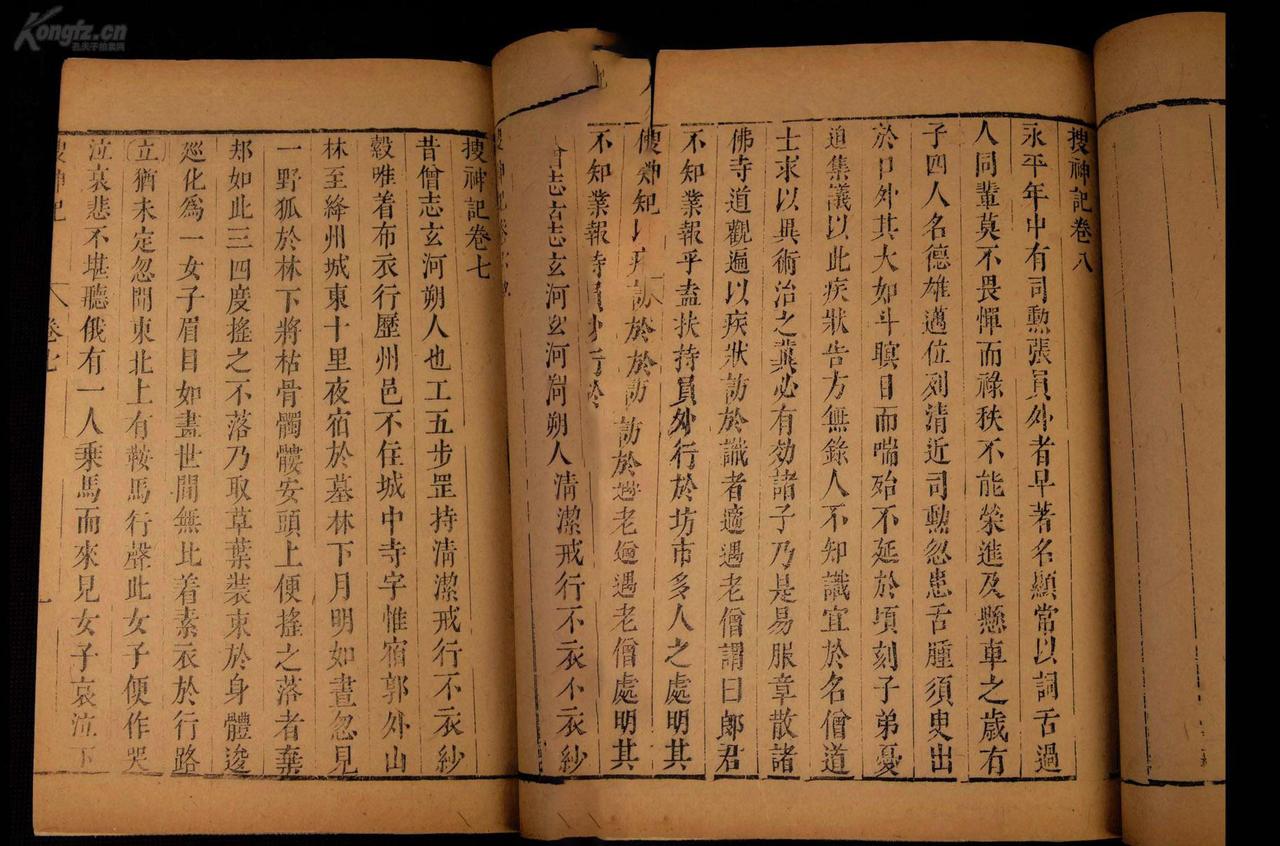 Kongfz.cn
孔夫子拍卖网
搜神記卷八
永平年中有司勲張員外者早著名顯常以詞舌過
人同輩莫不畏憚而祿秩不能榮進及懸車之歲有
子四人名德雄邁位列清近司勲忽患舌腫須臾出
於口外其大如斗瞑目而喘殆不延於頃刻子弟憂
迫集議以此疾狀告方無錄人不知識宜於名僧道
士求以異術治之冀必有効諸子乃是易服章散諸
佛寺道觀遍以疾狀訪於識者適遇老僧謂曰郎君
不知業報乎盍扶持員外行於坊市多人之處明其
老僧處明其
不知業報
志玄河朔人清潔戒行不衣不衣紗
搜神記卷七
昔僧志玄河朔人也工五步罡持清潔戒行不衣紗
縠唯着布衣行歷州邑不住城中寺宇惟宿郭外山
林至絳州城東十里夜宿於墓林下月明如晝忽見
一野狐於林下將枯骨髑髏安頭上便搖之落者棄
却如此三四度搖之不落乃取草葉裝束於身體逡
廵化爲一女子眉目如畫世間無比着素衣於行路
立猶未定忽聞東北上有鞍馬行聲此女子便作哭
泣哀悲不堪聽俄有一人乗馬而來見女子哀泣下
搜神記 卷七